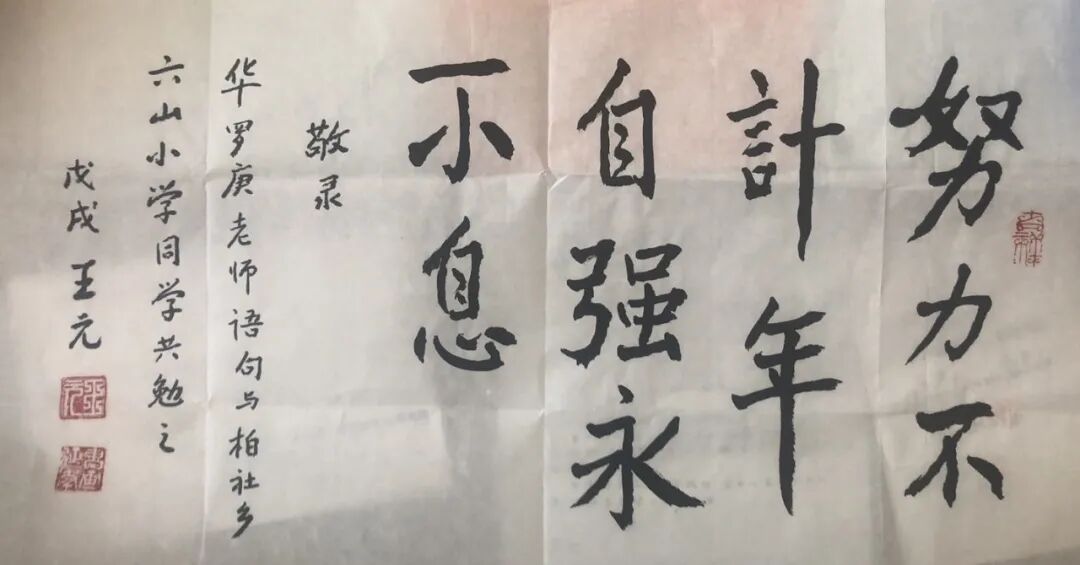 努力不
計年
自强永
不息
敬录
华罗庚老师语句与柏社乡
六山小学同学共勉之
戊戌 王元